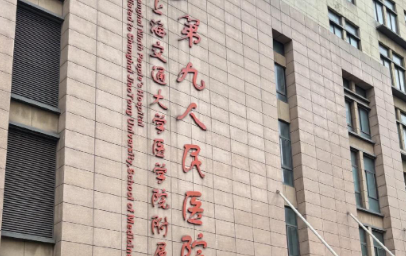 第九人民医院
上海交通大学医学院附属
Shanghai Ninth People's Hospital
to Shanghai JiaoTong University, School of Medicine